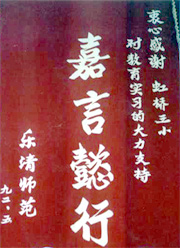 衷心感谢 虹桥三小
对教育实习的大力支持
嘉言懿行
乐清师范
九二.五